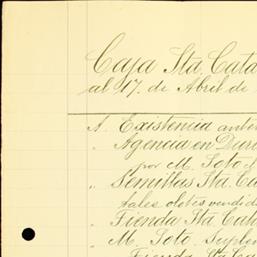 Caja Sta Cata
al 17. de Abril de
A Existencia ante
" Agencia en Dur
por M. Soto
" Semillas Sta. Ca
tales
" Tienda Sta Cata
" M. Soto. Suple
Tienda Sta Ca